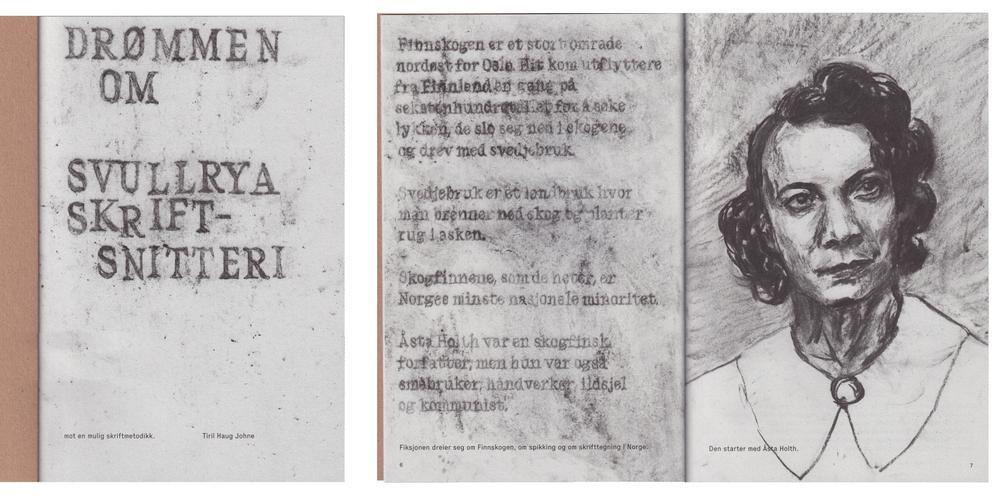 DRØMMEN
OM
SVULLRYA
SKRIFT-
SNITTERI
mot en mulig skriftmetodikk.
Tiril Haug Johne
Finnskogen er et stort område
nordøst for Oslo. Hit kom utflyttere
fra Finnland en gang på
sekstenhundretallet for å søke
lykken, de slo seg ned i skogene
og drev med svedjebruk.
Svedjebruk er et landbruk hvor
man brenner ned skog og planter
rug i asken.
Skogfinnene, som de heter, er
Norges minste nasjonale minoritet.
Åsta Holth var en skogfinsk
forfatter, men hun var også
småbruker, håndverker, ildsjel
og kommunist.
Fiksjonen dreier seg om Finnskogen, om spikking og om skrifttegning i Norge.
6
Den starter med Åsta Holth.
7